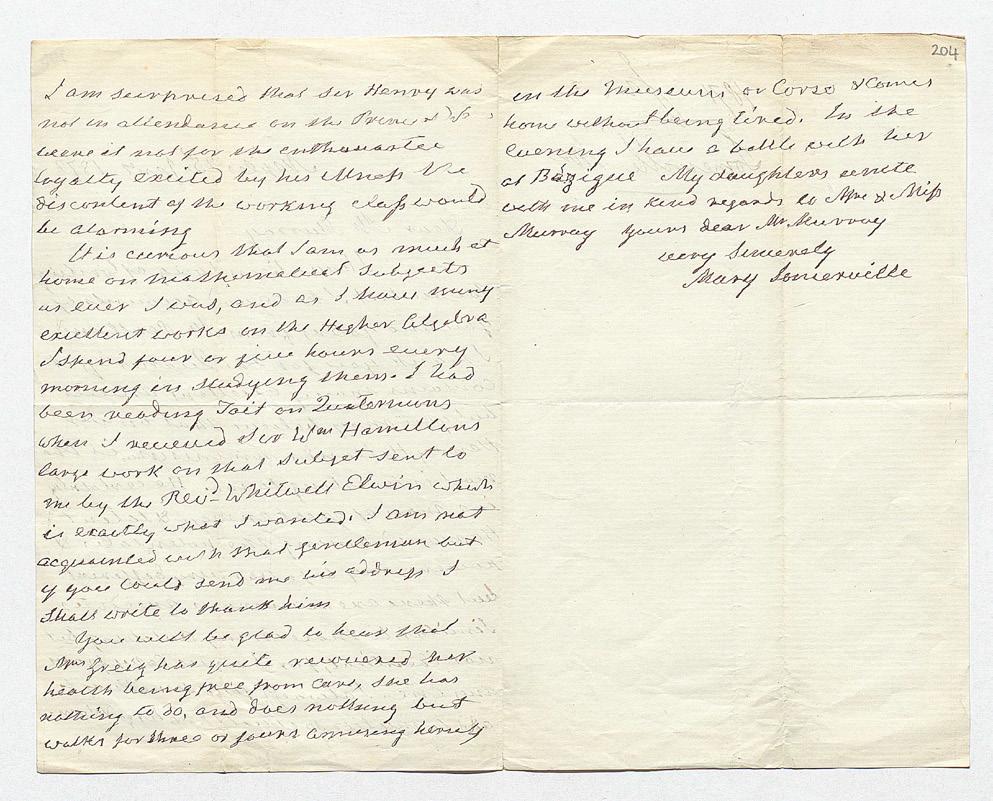 I am surprised that Sir Henry was
not in attendance on the Prince &
were it not for the
loyalty excited by his illness the
discontent of the working class would
be alarming
It is curious that I am as much at
home on mathematical subjects
as ever I was, and as I have many
excellent works on the Higher Algebra
I spend four or five hours every
morning in studying them. I had
been reading Tait on Quaternions
when I received Sir Wm Hamiltons
large work on that subject sent to
me by the Revd Whitwell Elwin which
is exactly what I wanted. I am not
acquainted with that gentleman but
if you could send me his address I
shall write to thank him
You will be glad to hear that
Mrs Greig has quite recovered her
health being free from care, she has
nothing to do, and does nothing but
walks for three or fours amusing herself
204
in the Museum or Corso & comes
home without being tired. In the
evening I have a battle with her
at Bézique My daughters unite
with me in kind regards to Mrs & Miss
Murray Yours dear Mr Murray
very sincerely
Mary Somerville